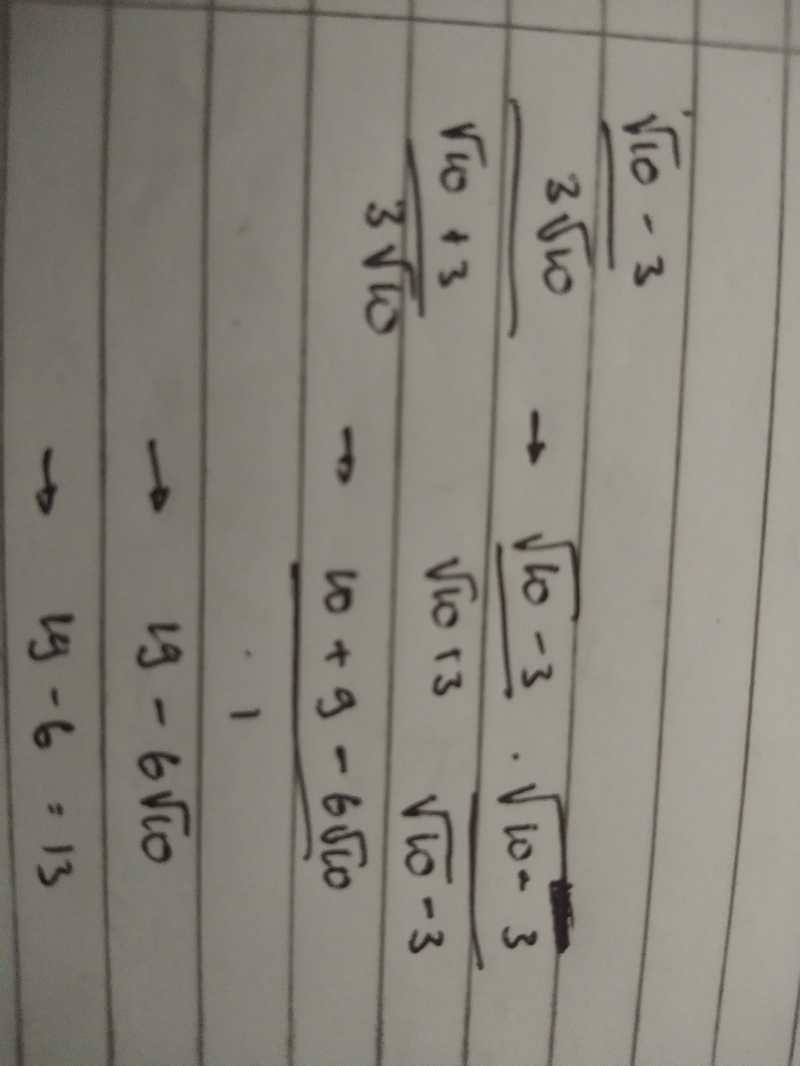 √10 - 3
3√10 → √10 - 3 . √10 - 3
√10 + 3 √10 + 3 √10 - 3
3√10 → 10 + 9 - 6√10
1
→ 19 - 6√10
→ 19 - 6 = 13